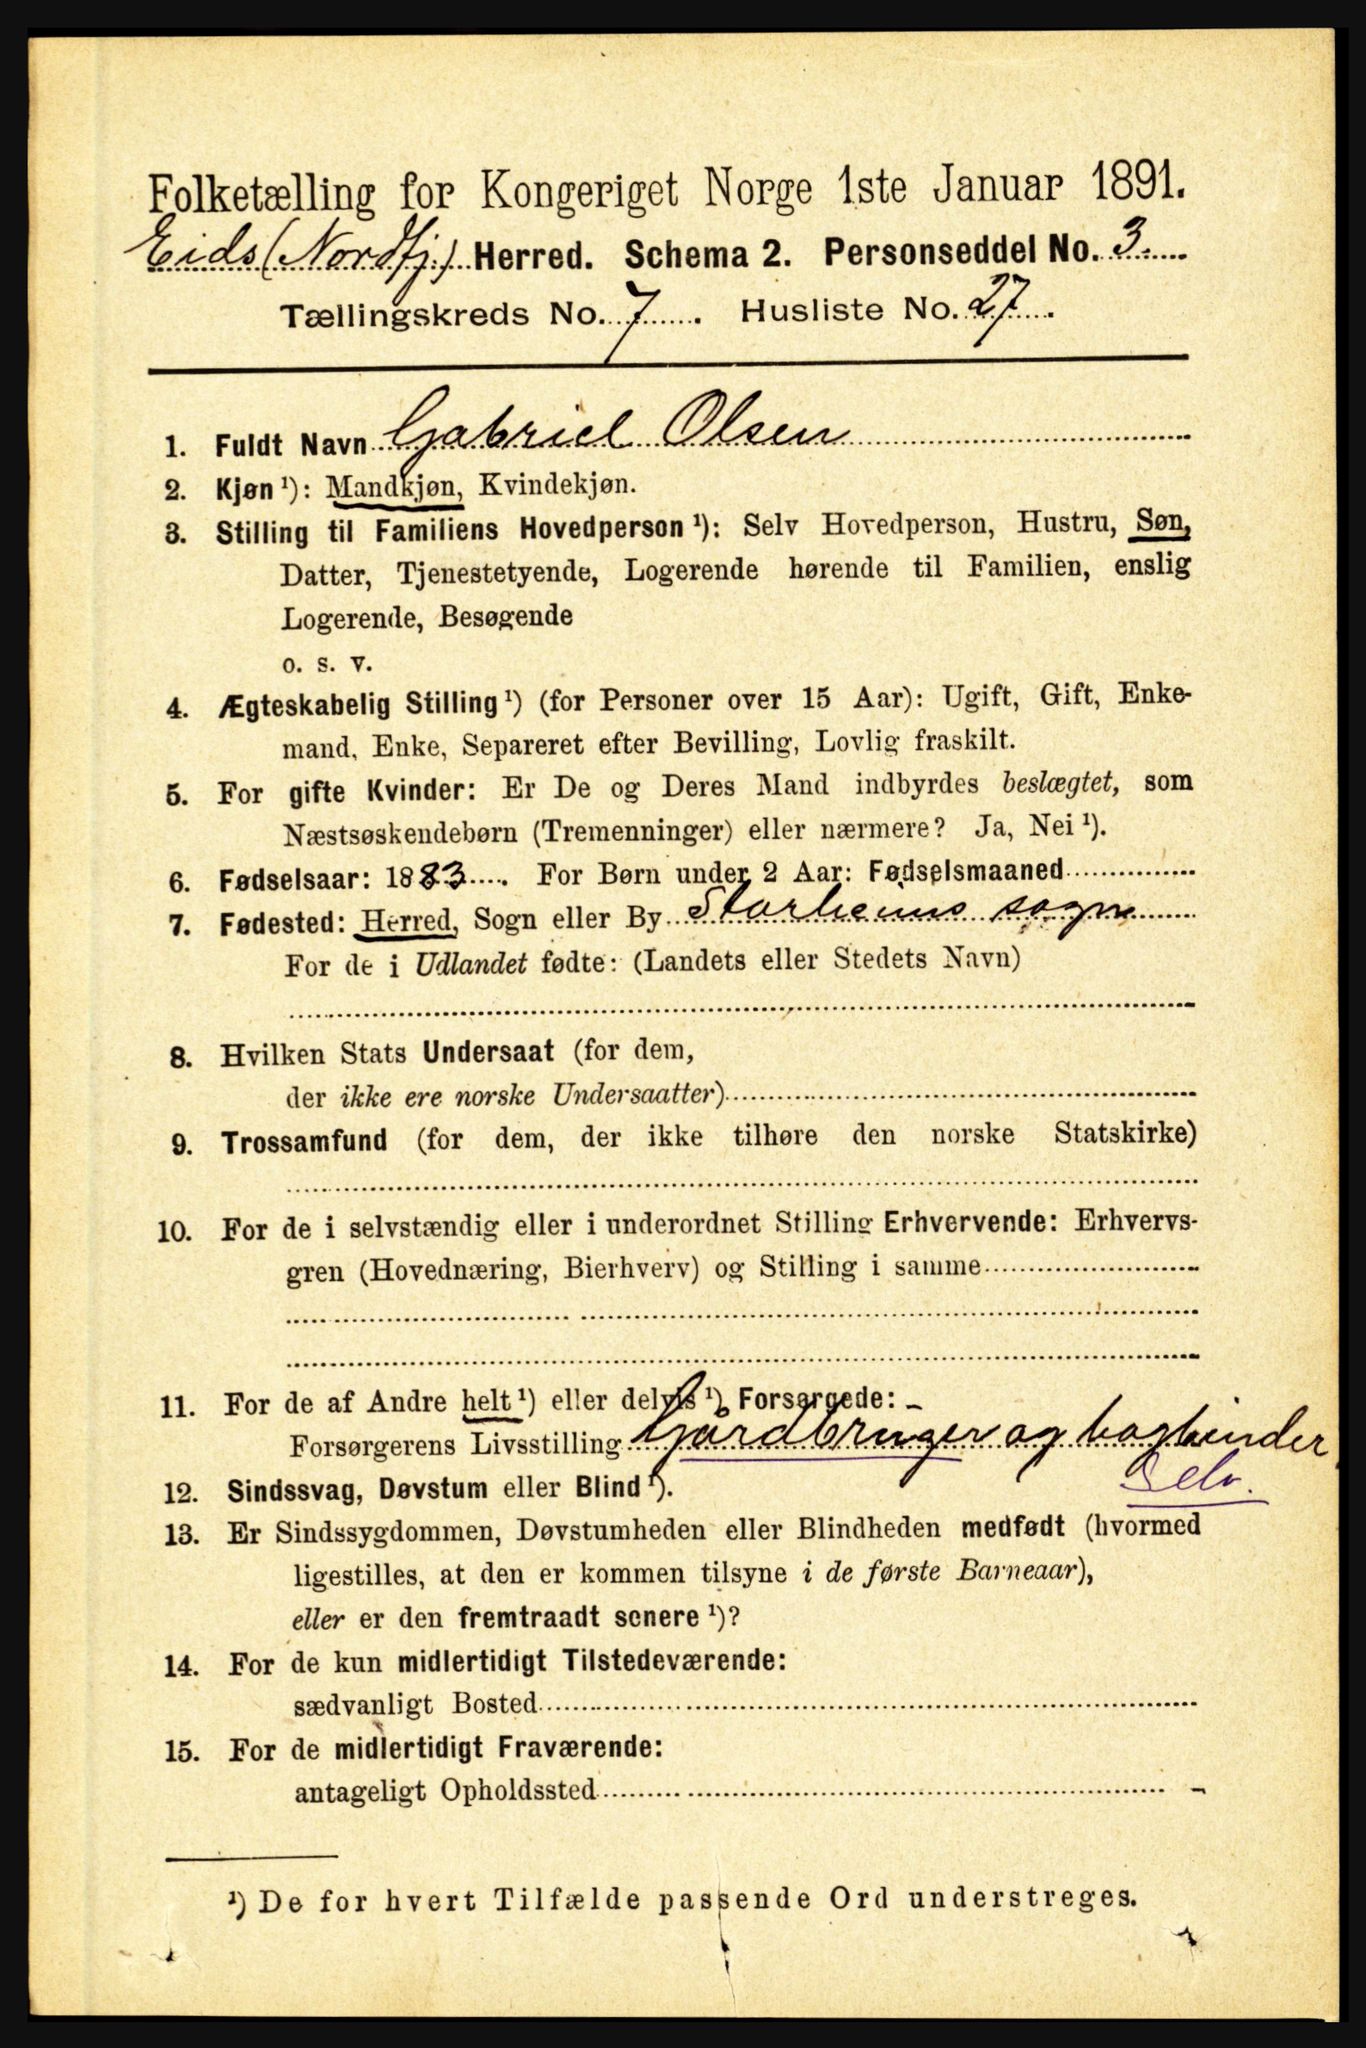 Folketælling for Kongeriget Norge 1ste Januar 1891.
Eids (Nordfj.) Herred. Schema 2. Personseddel No. 3.
Tællingskreds No. 7. Husliste No. 27.
1. Fuldt Navn Gabriel Olsen
2. Kjøn ¹): Mandkjøn, Kvindekjøn.
3. Stilling til Familiens Hovedperson ¹): Selv Hovedperson, Hustru, Søn,
Datter, Tjenestetyende, Logerende hørende til Familien, enslig
Logerende, Besøgende
o. s. v.
4. Ægteskabelig Stilling ¹) (for Personer over 15 Aar): Ugift, Gift, Enke-
mand, Enke, Separeret efter Bevilling, Lovlig fraskilt.
5. For gifte Kvinder: Er De og Deres Mand indbyrdes beslægtet, som
Næstsøskendebørn (Tremenninger) eller nærmere? Ja, Nei ¹).
6. Fødselsaar: 1883. For Børn under 2 Aar: Fødselsmaaned
7. Fødested: Herred, Sogn eller By Starheims sogn
For de i Udlandet fødte: (Landets eller Stedets Navn)
8. Hvilken Stats Undersaat (for dem,
der ikke ere norske Undersaatter)
9. Trossamfund (for dem, der ikke tilhøre den norske Statskirke)
10. For de i selvstændig eller i underordnet Stilling Erhvervende: Erhvervs-
gren (Hovednæring, Bierhverv) og Stilling i samme
11. For de af Andre helt ¹) eller delvis ¹) Forsørgede:
Forsørgerens Livsstilling Gårdbruger og bogbinder
Selv.
12. Sindssvag, Døvstum eller Blind ¹).
13. Er Sindssygdommen, Døvstumheden eller Blindheden medfødt (hvormed
ligestilles, at den er kommen tilsyne i de første Barneaar),
eller er den fremtraadt senere ¹)?
14. For de kun midlertidigt Tilstedeværende:
sædvanligt Bosted
15. For de midlertidigt Fraværende:
antageligt Opholdssted
¹) De for hvert Tilfælde passende Ord understreges.